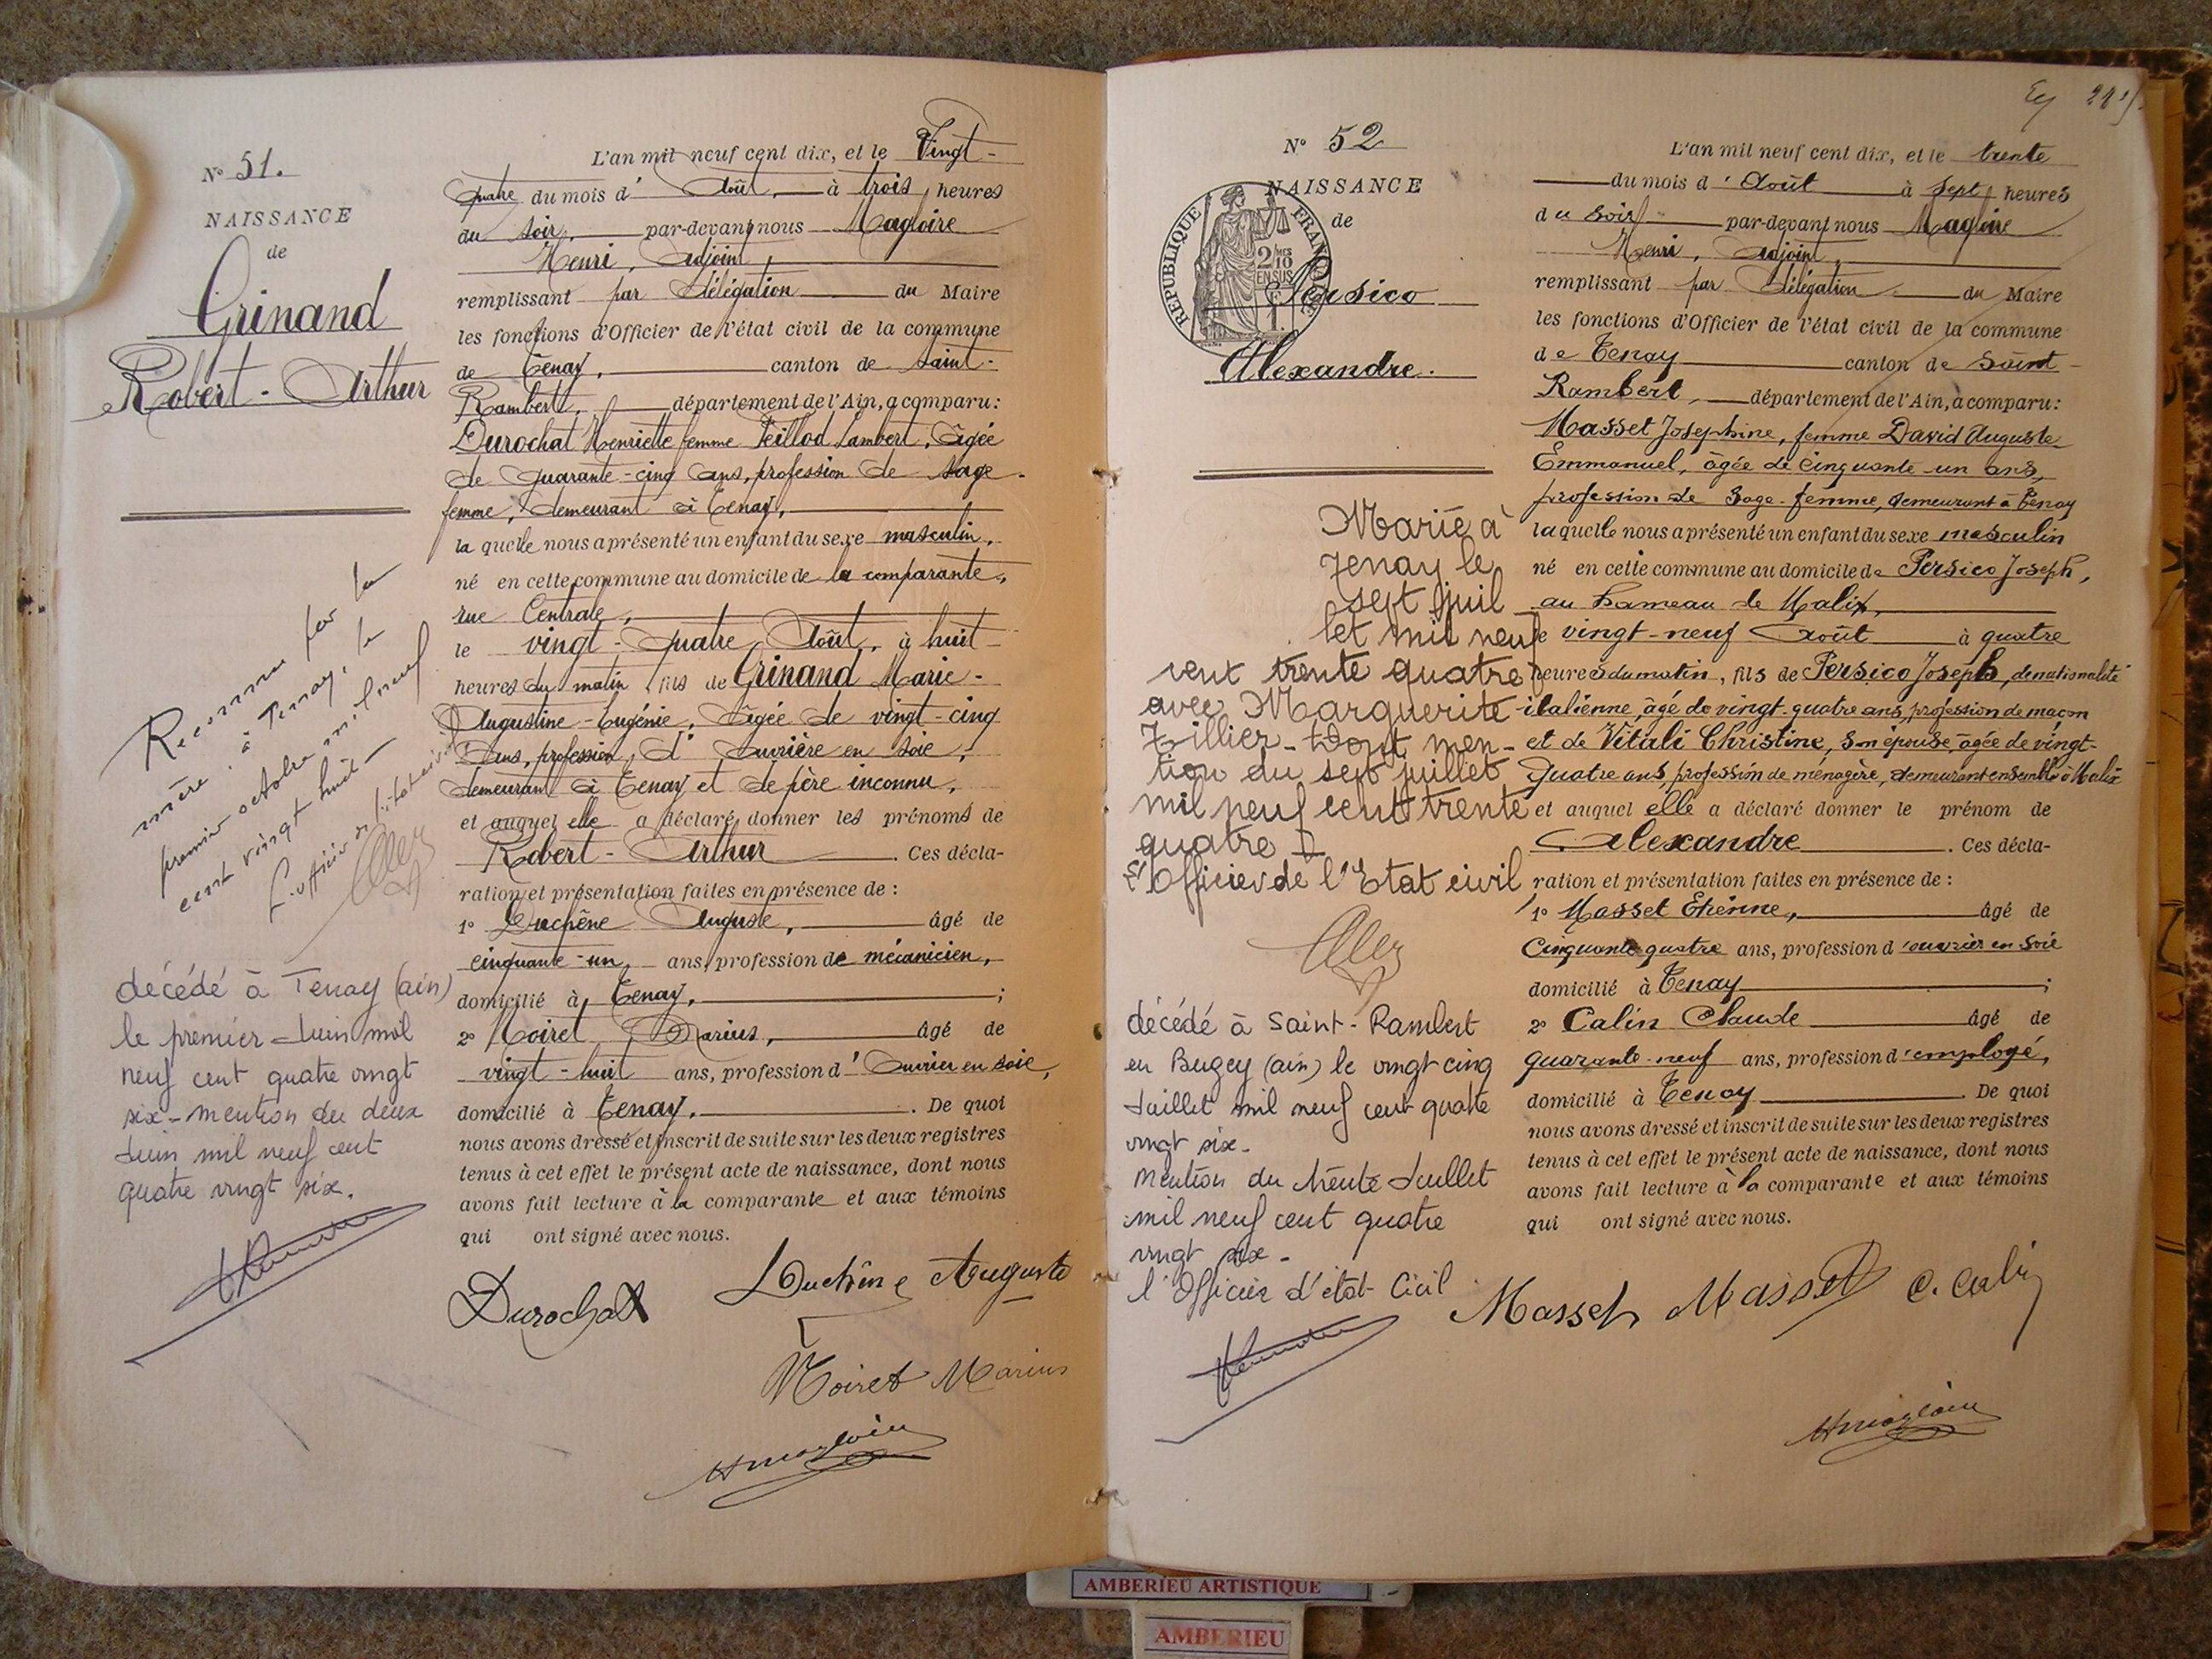 N° 51.
NAISSANCE
de
Grinand
Robert - Arthur
Reconnu par sa
mère à Tenay, le
premier octobre mil neuf
cent vingt huit -
L'officier de l'état civil
décédé à Tenay (ain)
le premier Juin mil
neuf cent quatre vingt
six - mention du deux
Juin mil neuf cent
quatre vingt six.
L'an mil neuf cent dix, et le Vingt-
quatre du mois d' Août, à trois heures
du soir, par-devant nous Magloire
Henri, Adjoint,
remplissant par Délégation du Maire
les fonctions d'Officier de l'état civil de la commune
de Tenay, canton de Saint-
Rambert, département de l'Ain, a comparu:
Durochat Henriette femme Peillod Lambert, âgée
de quarante-cinq ans, profession de sage-
femme, demeurant à Tenay,
la quelle nous a présenté un enfant du sexe masculin,
né en cette commune au domicile de la comparante,
rue Centrale,
le vingt-quatre Août, à huit
heures du matin, fils de Grinand Marie-
Augustine-Eugénie, âgée de vingt-cinq
ans, profession d' ouvrière en soie,
demeurant à Tenay et de père inconnu,
et auquel elle a déclaré donner les prénoms de
Robert - Arthur. Ces décla-
ration et présentation faites en présence de :
1° Duchêne Auguste, âgé de
cinquante-un, ans, profession de mécanicien,
domicilié à Tenay, ;
2° Moiret Marius, âgé de
vingt-huit ans, profession d' Ouvrier en soie,
domicilié à Tenay. . De quoi
nous avons dressé et inscrit de suite sur les deux registres
tenus à cet effet le présent acte de naissance, dont nous
avons fait lecture à la comparante et aux témoins
qui ont signé avec nous.
Durochat
Duchêne Auguste
Moiret Marius
Hmagloire
Ey
N° 52
NAISSANCE
de
REPUBLIQUE FRANÇAISE
2/10
EN SUS
1F
Persico
Alexandre.
Marié à
Tenay le
sept juil
let mil neuf
cent trente quatre
avec Marguerite
Tillier - Dont men-
tion du sept juillet
mil neuf cent trente
quatre
L'Officier de l'Etat civil
décédé à Saint-Rambert
en Bugey (ain) le vingt cinq
Juillet mil neuf cent quatre
vingt six -
Mention du trente Juillet
mil neuf cent quatre
vingt six -
l'Officier d'état Civil
L'an mil neuf cent dix, et le trente
du mois d' Août à sept heures
du soir par-devant nous Magloire
Henri, Adjoint,
remplissant par Délégation du Maire
les fonctions d'Officier de l'état civil de la commune
de Tenay canton de Saint-
Rambert, département de l'Ain, a comparu:
Masset Josephine, femme David Auguste
Emmanuel, âgée de cinquante-un ans,
profession de Sage-femme, demeurant à Tenay
la quelle nous a présenté un enfant du sexe masculin
né en cette commune au domicile de Persico Joseph,
au hameau de Malix,
le vingt-neuf Août à quatre
heures du matin, fils de Persico Joseph, de nationalité
italienne, âgé de vingt-quatre ans, profession de maçon
et de Vitali Christine, son épouse, âgée de vingt-
quatre ans, profession de ménagère, demeurant ensemble à Malix
et auquel elle a déclaré donner le prénom de
Alexandre. Ces décla-
ration et présentation faites en présence de :
1° Masset Etienne, âgé de
Cinquante quatre ans, profession d'ouvrier en soie
domicilié à Tenay ;
2° Calin Claude âgé de
quarante-neuf ans, profession d'employé,
domicilié à Tenay. De quoi
nous avons dressé et inscrit de suite sur les deux registres
tenus à cet effet le présent acte de naissance, dont nous
avons fait lecture à la comparante et aux témoins
qui ont signé avec nous.
Masset Masset C. Calin
Hmagloire
AMBERIEU ARTISTIQUE
AMBERIEU